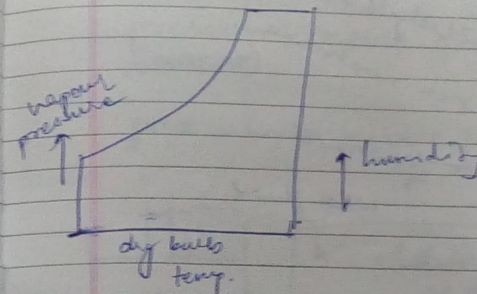 vapour
pressure
humidity
dry bulb
temp.